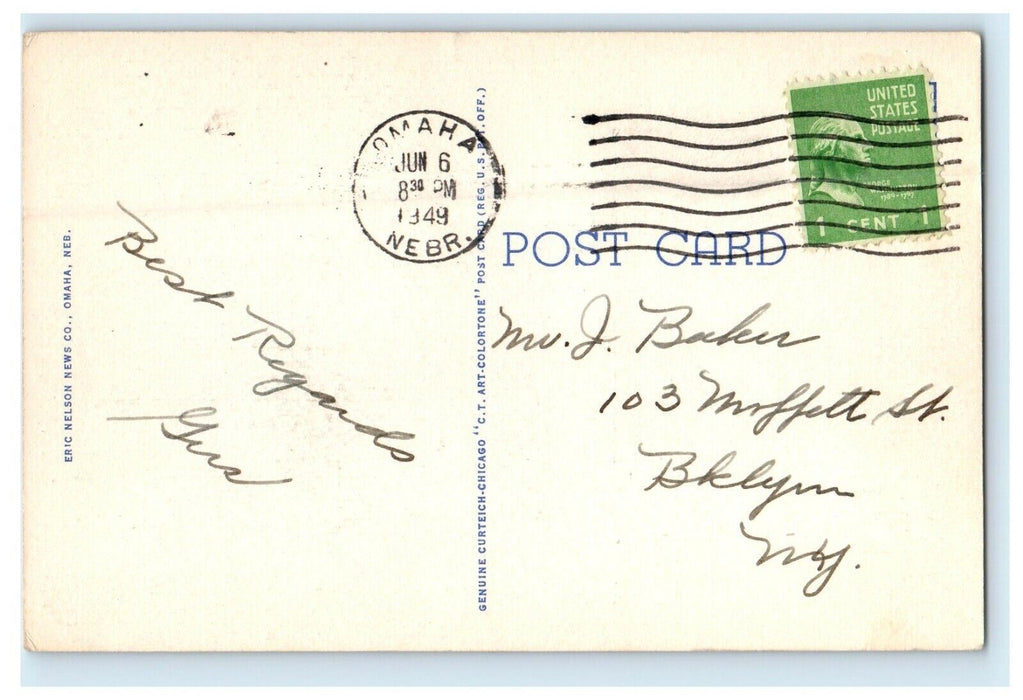 OMAHA
JUN 6
8 30 PM
1949
NEBR.
UNITED
STATES
POSTAGE
1 CENT 1
POST CARD
ERIC NELSON NEWS CO., OMAHA, NEB.
Best Regards
Gus
GENUINE CURTEICH-CHICAGO "C.T. ART-COLORTONE" POST CARD (REG. U.S. PAT. OFF.)
Mr. J. Baker
103 Moffett St.
Bklyn
NY.